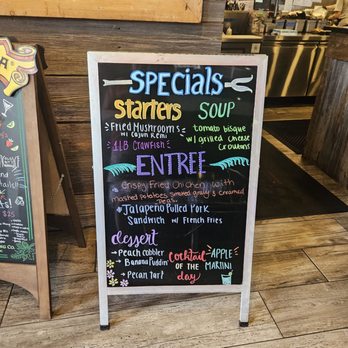 SPECIALS
Starters
Fried Mushrooms
w/ Cajun Remi
1LB Crawfish
SOUP
tomato bisque
w/ grilled cheese
croutons
ENTREÉ
Crispy Fried Chicken with
mashed potatoes smoked gravy & creamed
Peas
Jalapeño Pulled Pork
Sandwich w/ French Fries
dessert
→ Peach cobbler
→ Banana Puddin'
→ Pecan tart
Cocktail
OF THE
day
→ APPLE
MARTINI
$25